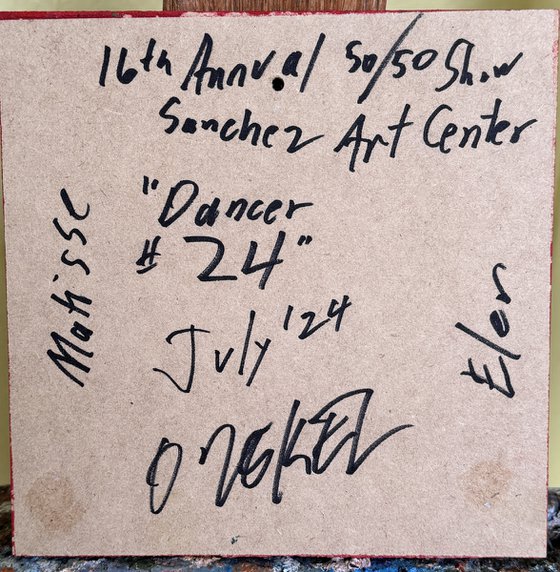 16th Annual 50/50 Show
Sanchez Art Center
"Dancer
# 24"
July '24
Matisse
Elon